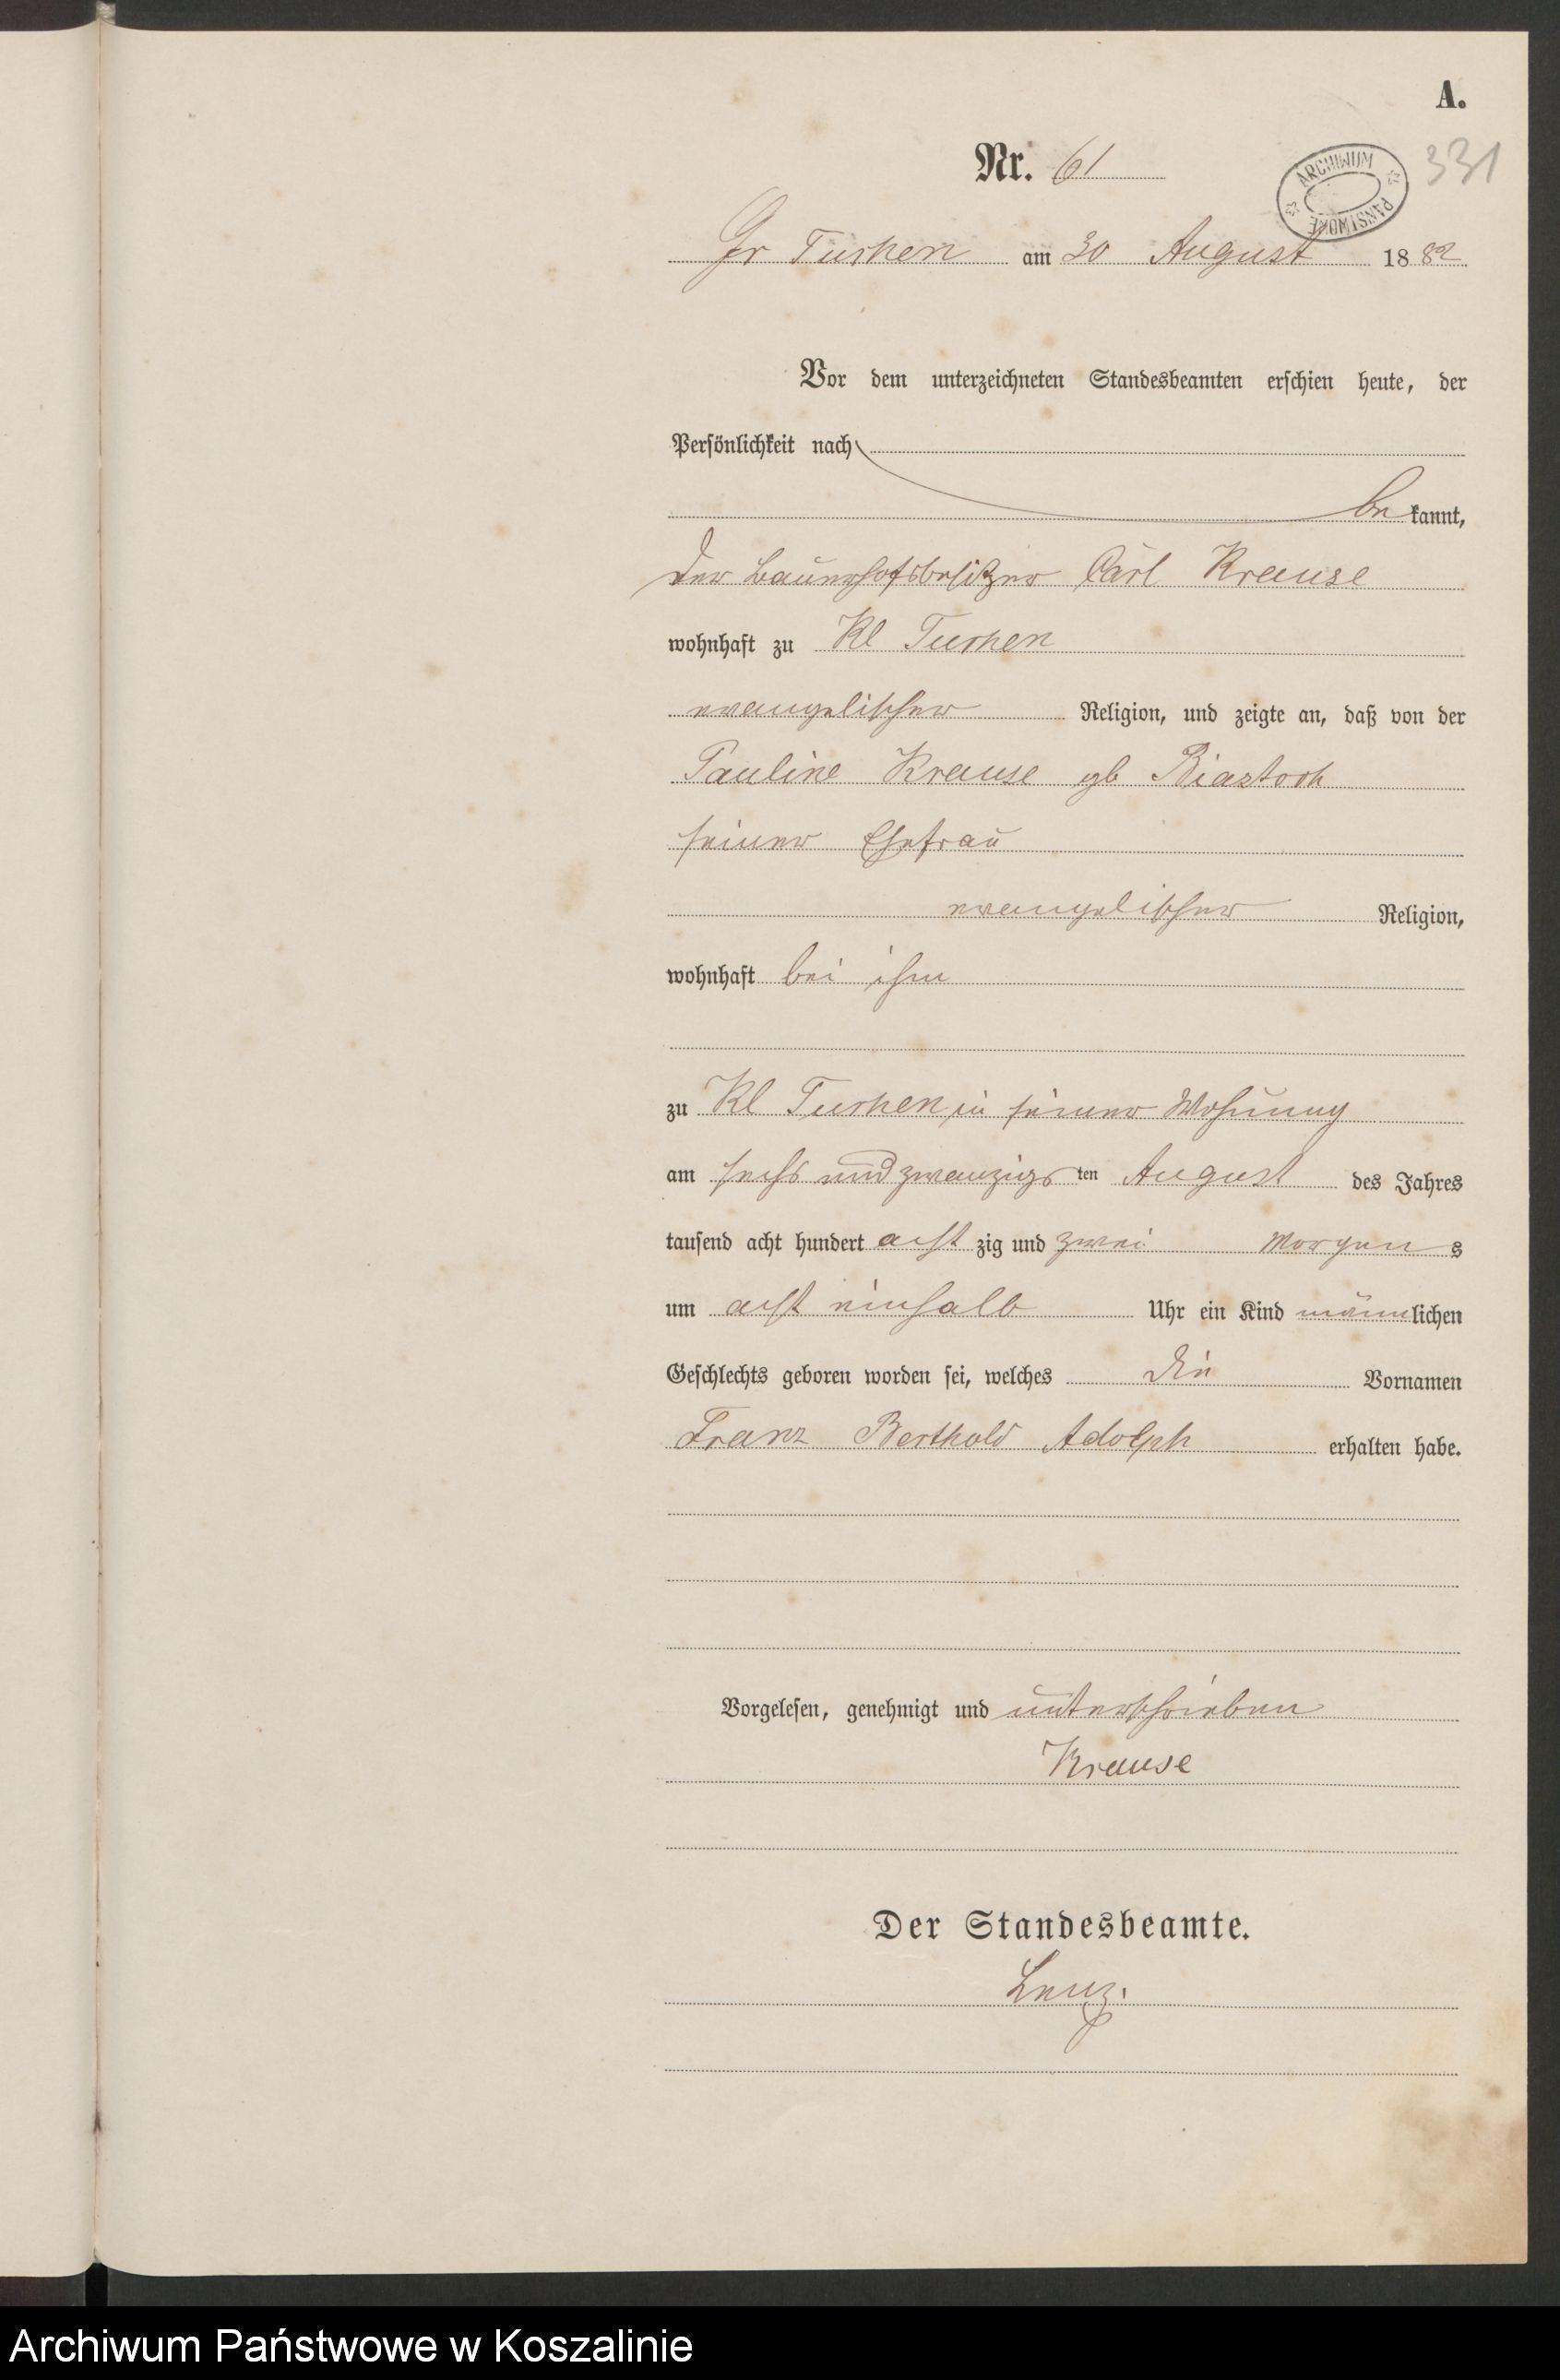 A.
Nr. 61
ARCHIWUM PAŃSTWOWE
331
Gr Tuchen am 30 August 1882
Vor dem unterzeichneten Standesbeamten erschien heute, der
Persönlichkeit nach
bekannt,
der Bauerhofsbesitzer Carl Krause
wohnhaft zu Kl Tuchen
evangelischer Religion, und zeigte an, daß von der
Pauline Krause gb
seiner Ehefrau
evangelischer Religion,
wohnhaft bei ihm
zu Kl Tuchen in seiner Wohnung
am sechs und zwanzigsten August des Jahres
tausend acht hundert achtzig und zwei Morgens
um acht einhalb Uhr ein Kind männlichen
Geschlechts geboren worden sei, welches die Vornamen
Franz Berthold Adolph erhalten habe.
Vorgelesen, genehmigt und unterschrieben
Krause
Der Standesbeamte.
Lenz.
Archiwum Państwowe w Koszalinie